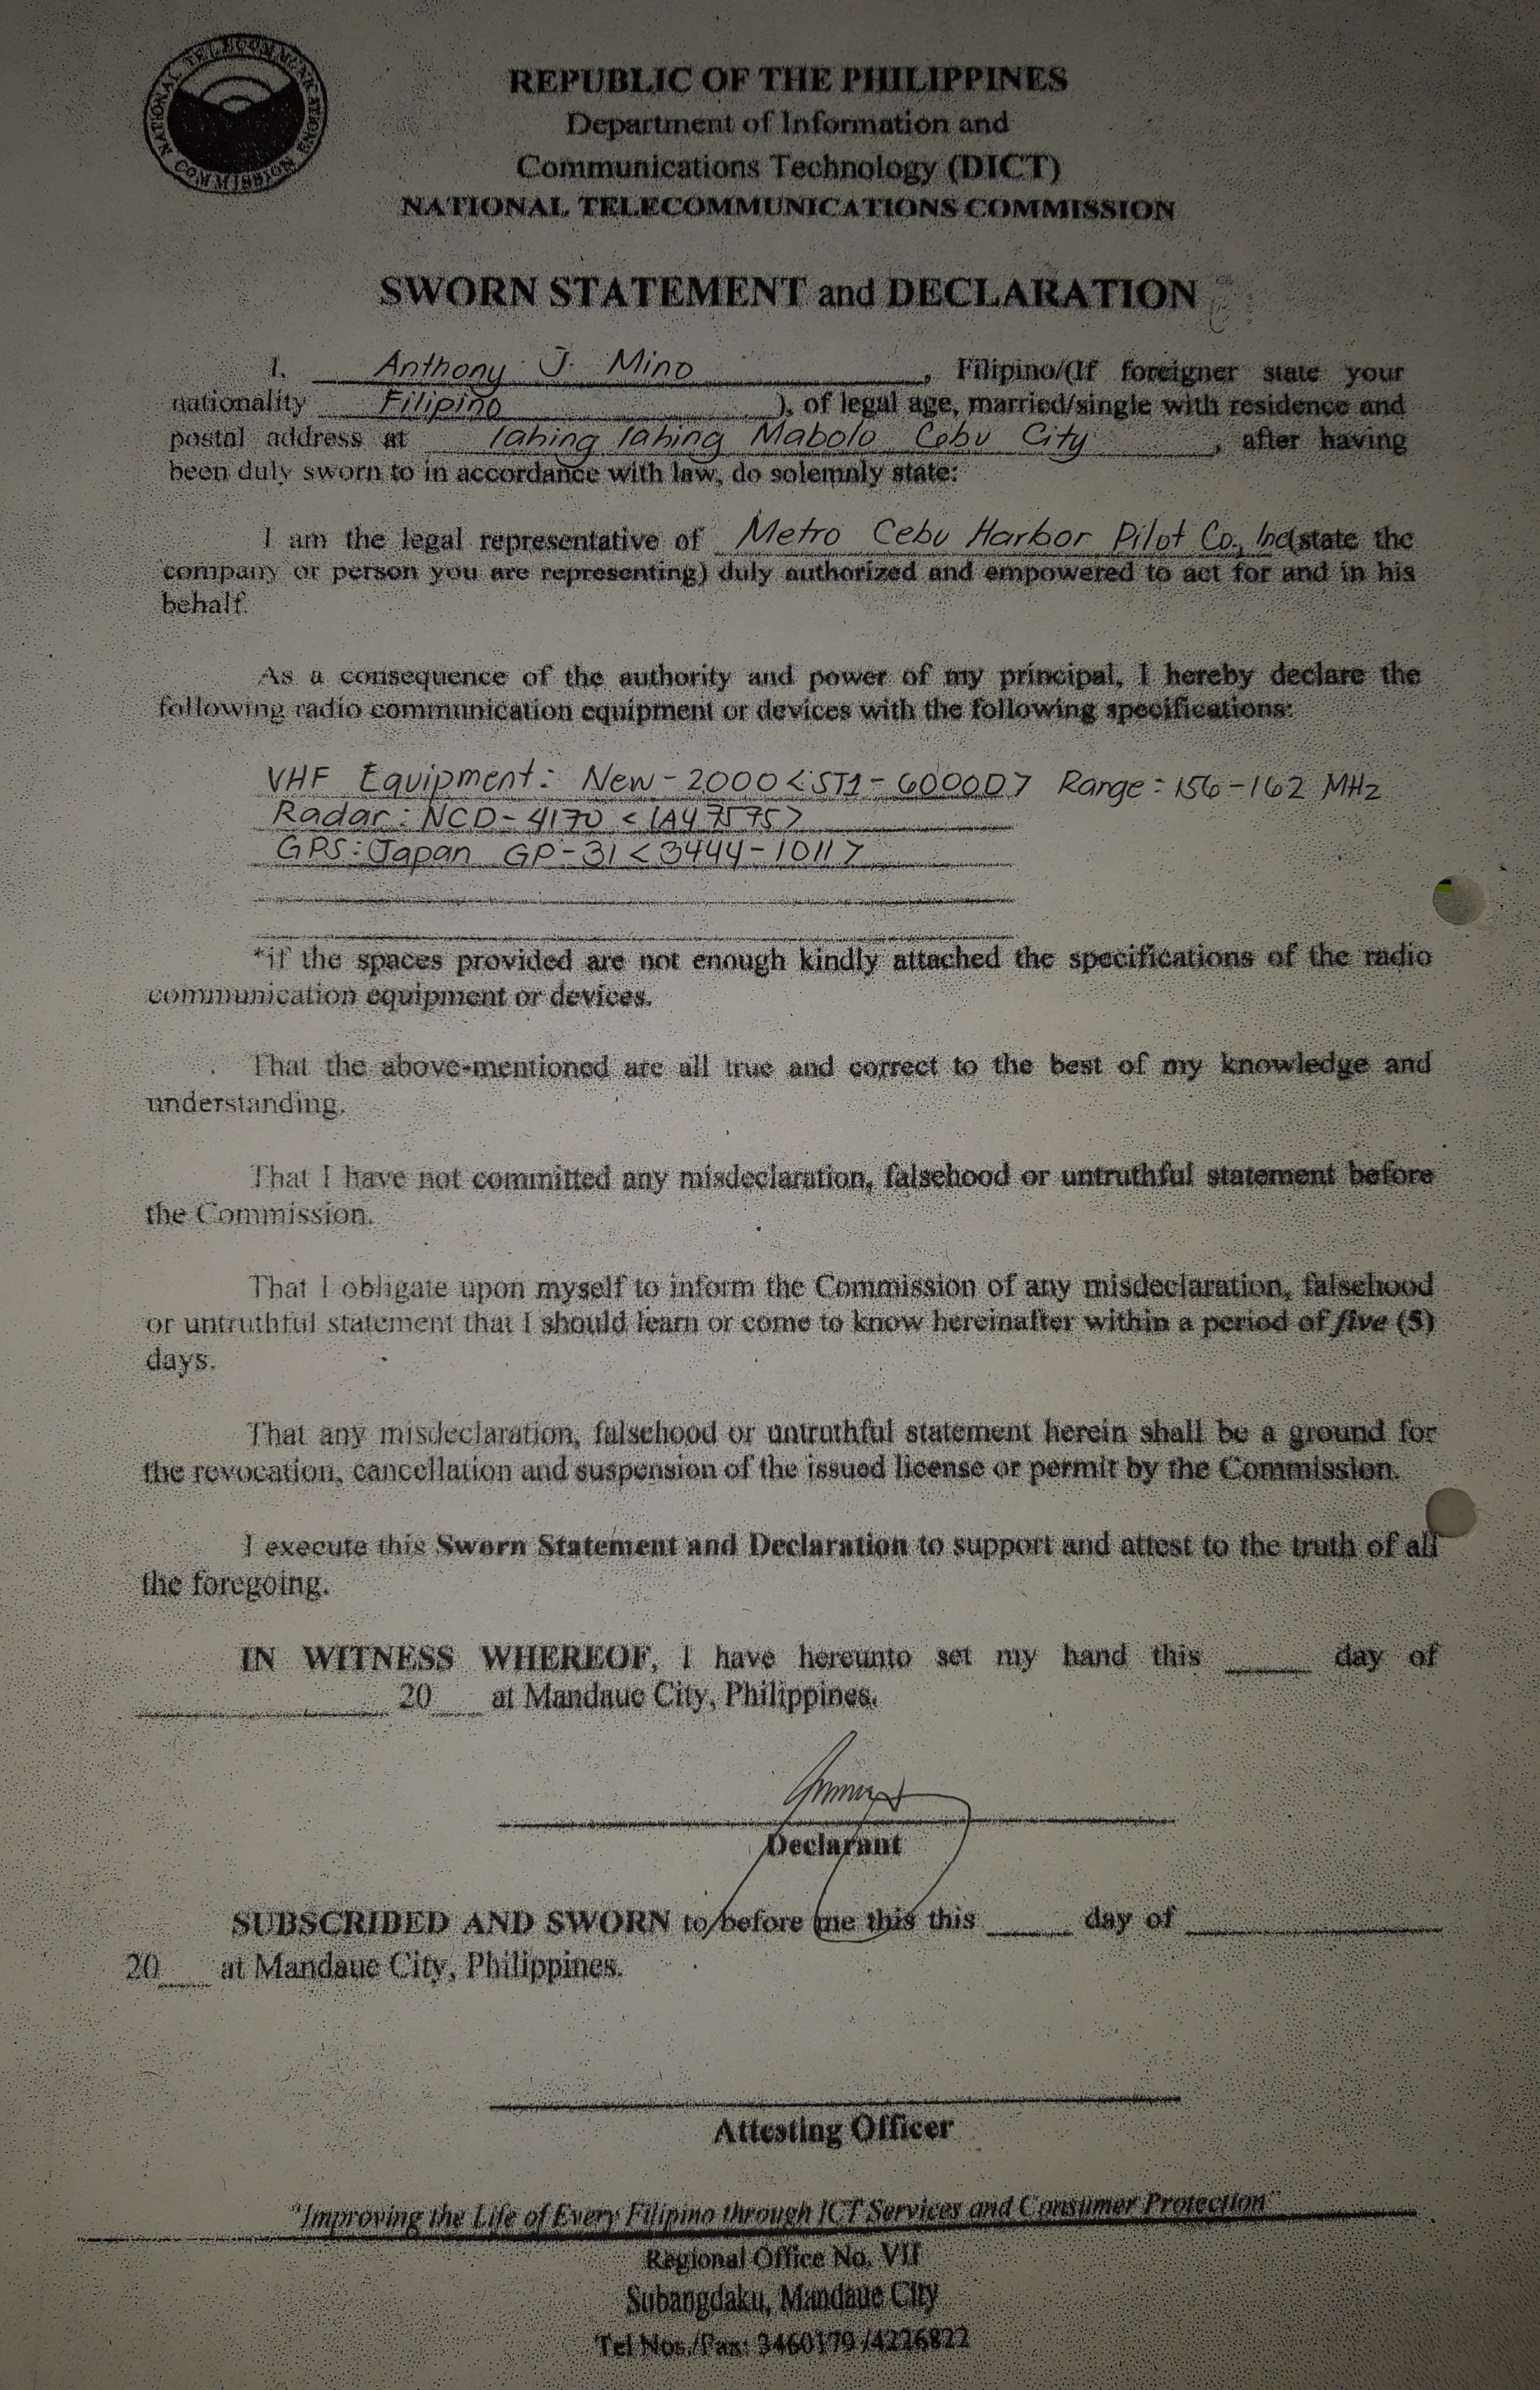 NATIONAL TELECOMMUNICATIONS COMMISSION
REPUBLIC OF THE PHILIPPINES
Department of Information and
Communications Technology (DICT)
NATIONAL TELECOMMUNICATIONS COMMISSION
SWORN STATEMENT and DECLARATION
I, Anthony J. Mino, Filipino/(If foreigner state your
nationality Filipino ), of legal age, married/single with residence and
postal address at Tahing Tahing Mabolo Cebu City, after having
been duly sworn to in accordance with law, do solemnly state:
I am the legal representative of Metro Cebu Harbor Pilot Co., Inc (state the
company or person you are representing) duly authorized and empowered to act for and in his
behalf.
As a consequence of the authority and power of my principal, I hereby declare the
following radio communication equipment or devices with the following specifications:
VHF Equipment: New-2000 <ST1-6000D> Range: 156-162 MHz
Radar: NCD-4170 <1A47575>
GPS: Japan GP-31 <3444-1011>
*if the spaces provided are not enough kindly attached the specifications of the radio
communication equipment or devices.
That the above-mentioned are all true and correct to the best of my knowledge and
understanding.
That I have not committed any misdeclaration, falsehood or untruthful statement before
the Commission.
That I obligate upon myself to inform the Commission of any misdeclaration, falsehood
or untruthful statement that I should learn or come to know hereinafter within a period of five (5)
days.
That any misdeclaration, falsehood or untruthful statement herein shall be a ground for
the revocation, cancellation and suspension of the issued license or permit by the Commission.
I execute this Sworn Statement and Declaration to support and attest to the truth of all
the foregoing.
IN WITNESS WHEREOF, I have hereunto set my hand this ____ day of
____ 20__ at Mandaue City, Philippines.
Declarant
SUBSCRIBED AND SWORN to before me this this ____ day of ____
20__ at Mandaue City, Philippines.
Attesting Officer
"Improving the Life of Every Filipino through ICT Services and Consumer Protection"
Regional Office No. VII
Subangdaku, Mandaue City
Tel Nos./Fax: 3460179 /4226822